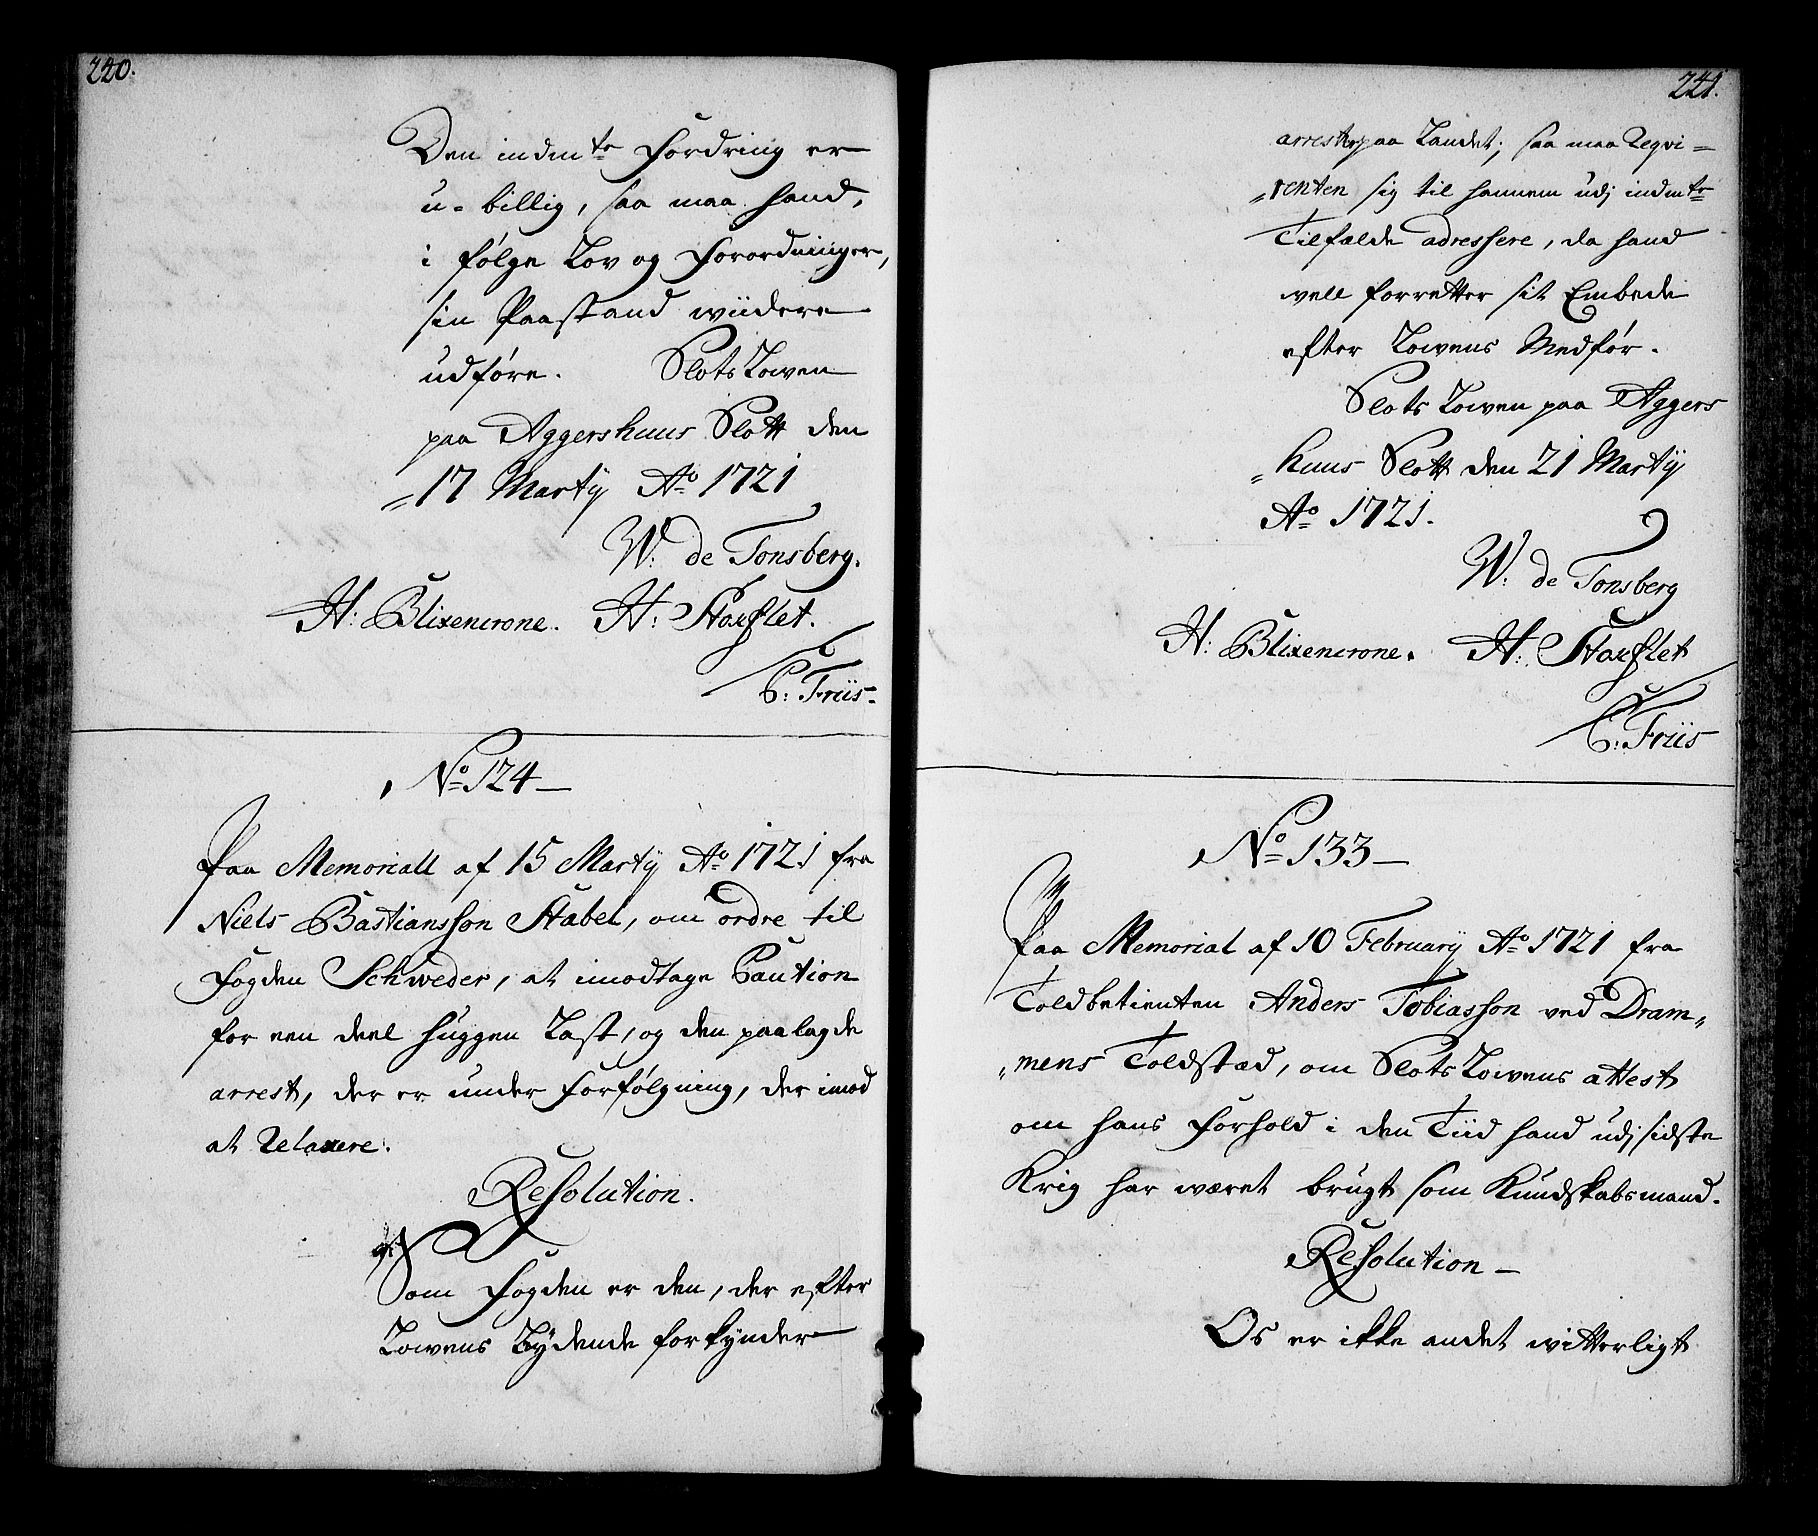 220.
Den indmte Fordring er
u-billig, saa maa hand,
i følge Lov og Forordninger,
sin Paastand wiidere
udføre. Slots Lowen
paa Aggershuus Slott den
17 Martÿ Ao 1721
W: de Tonsberg.
H: Blixencrone. H: Storflet.
C: Friis.
No 124
Paa Memoriall af 15 Martÿ Ao 1721 fra
Niels Bastiansson Stabel, om ordre til
Fogden Schweder, at imodtage Caution
for een deel huggen Last, og den paalagde
arrest, der er under Forfølgning, der imod
at Relaxere.
Resolution.
Som Fogden er den, der efter
Lowens Lydende forkÿnder
221.
arrester paa Landet; saa maa Reqvi=
renten sig til hannem udj indmte
Tilfælde adressere, da hand
vell forretter sit Embede
efter Lowens Medfør.
Slots Lowen paa Aggers
huus Slott den 21 Martÿ
Ao 1721.
W: de Tonsberg
H: Blixencrone. H: Storflet
C: Friis
No 133
Paa Memorial af 10 Februarÿ Ao 1721 fra
Toldbetienten Anders Tobiasson ved Dram„
„mens Toldstæd, om Slots Lowens attest
om hans Forhold i den Tiid hand udj sidste
Krig har wæret brugt som Kundskabsmand.
Resolution
Os er ikke andet witterligt